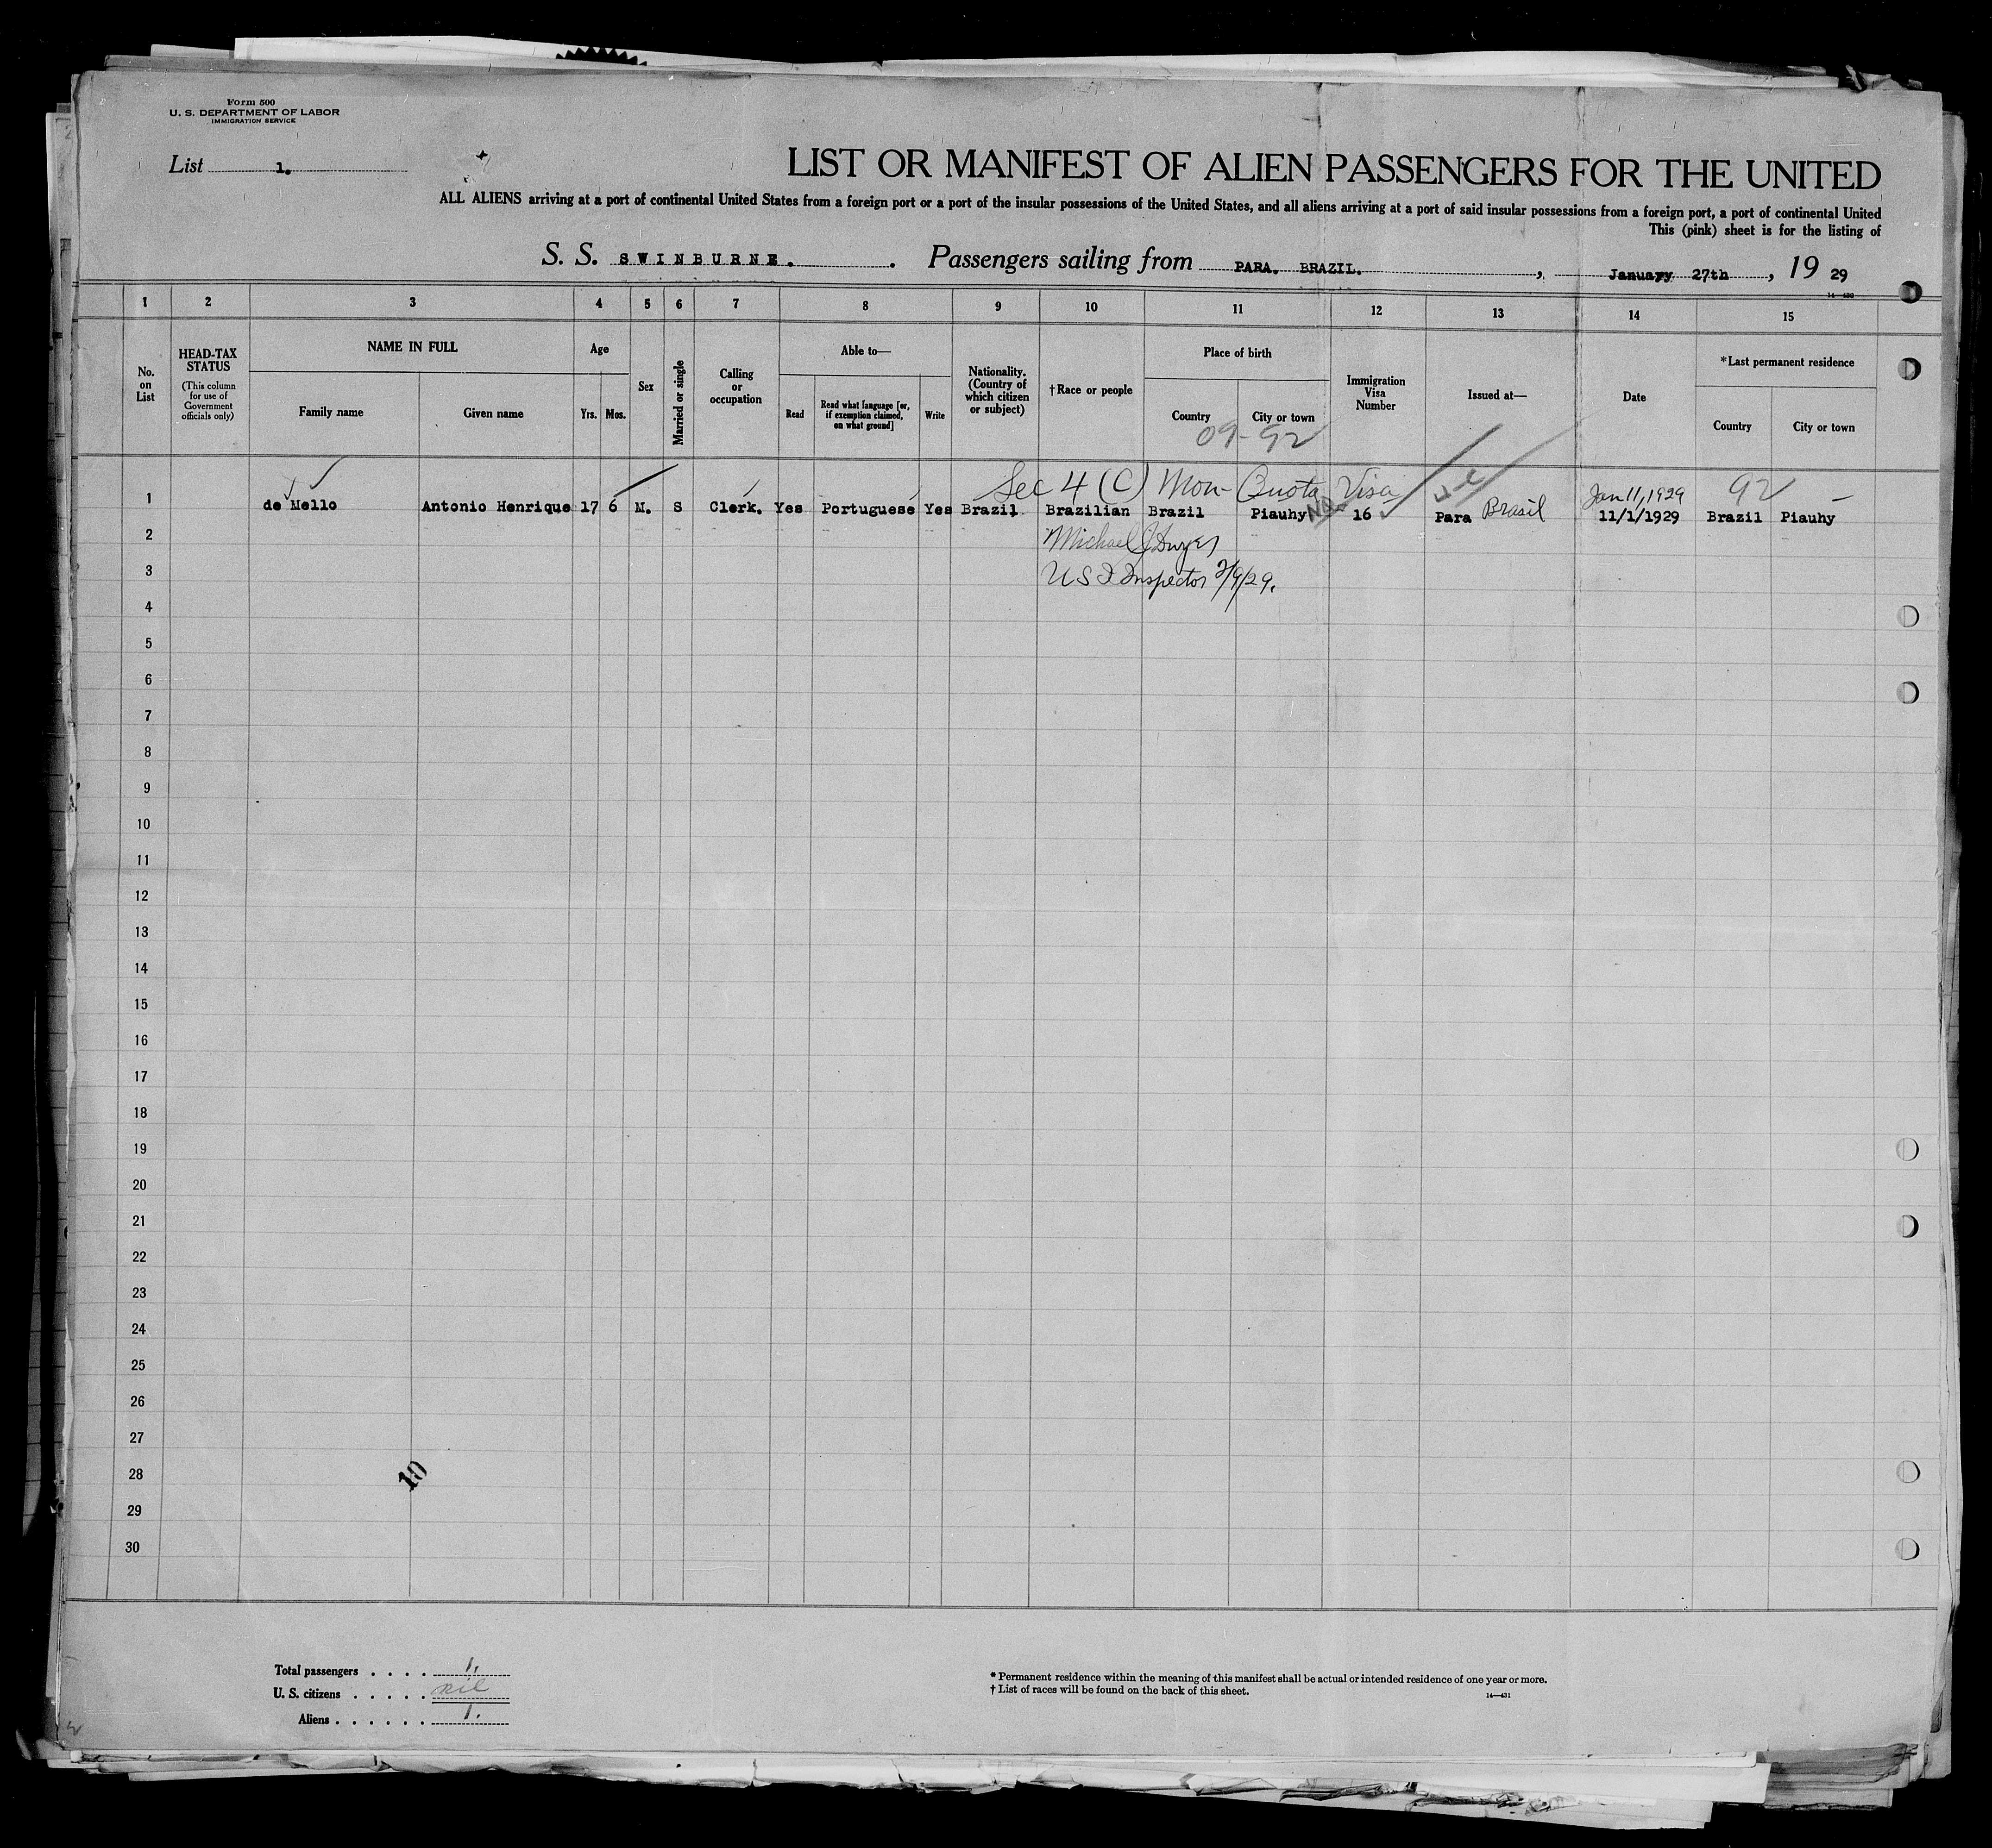 Form 500
U. S. DEPARTMENT OF LABOR
IMMIGRATION SERVICE
List 1.
LIST OR MANIFEST OF ALIEN PASSENGERS FOR THE UNITED
ALL ALIENS arriving at a port of continental United States from a foreign port or a port of the insular possessions of the United States, and all aliens arriving at a port of said insular possessions from a foreign port, a port of continental United
This (pink) sheet is for the listing of
S. S. SWINBURNE. . Passengers sailing from PARA. BRAZIL. , January 27th , 19 29
14—430
1 2 3 4 5 6 7 8 9 10 11 12 13 14 15
No. on List
HEAD-TAX STATUS
(This column for use of Government officials only)
NAME IN FULL
Family name
Given name
Age
Yrs. Mos.
Sex
Married or single
Calling or occupation
Able to—
Read
Read what language [or, if exemption claimed, on what ground]
Write
Nationality. (Country of which citizen or subject)
†Race or people
Place of birth
Country
City or town
09-92
Immigration Visa Number
Issued at—
Date
*Last permanent residence
Country
City or town
Sec 4 (C) Non-Quota Visa
Jan 11, 1929
92 —
1 de Mello Antonio Henrique 17 6 M. S Clerk. Yes Portuguese Yes Brazil Brazilian Brazil Piauhy 16 Para Brasil 11/1/1929 Brazil Piauhy
2
Michael J Dwyer
3
U S I Inspector 2/9/29.
4
5
6
7
8
9
10
11
12
13
14
15
16
17
18
19
20
21
22
23
24
25
26
27
28
10
29
30
Total passengers . . . . 1.
U. S. citizens . . . . . nil
Aliens . . . . . . 1.
* Permanent residence within the meaning of this manifest shall be actual or intended residence of one year or more.
† List of races will be found on the back of this sheet.
14—431